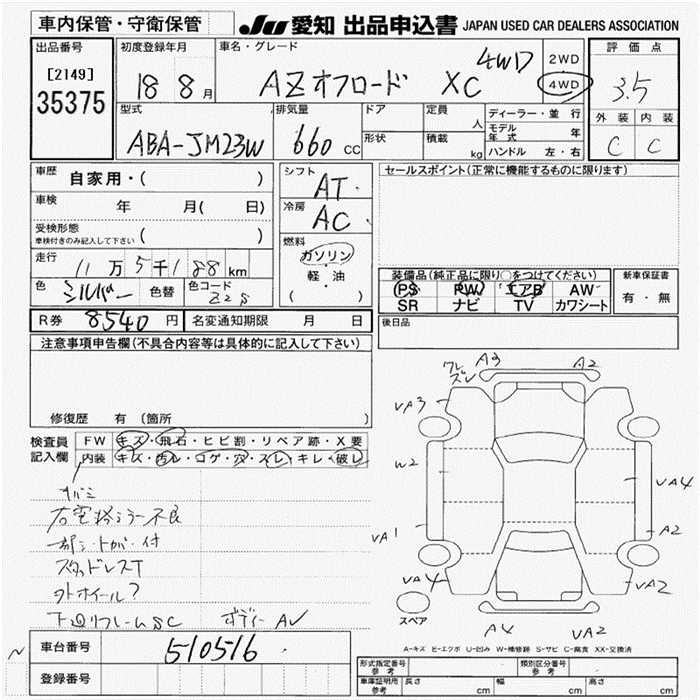 車内保管・守衛保管
JU 愛知 出品申込書 JAPAN USED CAR DEALERS ASSOCIATION
出品番号
[2149]
35375
初度登録年月
18 8月
車名・グレード
AZオフロード XC 4WD
2WD
4WD
評価点
3.5
外装 内装
C C
型式
ABA-JM23W
排気量
660 CC
ドア
形状
定員
人
積載
kg
ディーラー・並行
モデル年式 年
ハンドル 左・右
車歴
自家用・( )
車検
年 月( 日)
受検形態
車検付きのみ記入して下さい ( )
走行
11万5千188km
色
シルバー
色替
色コード
Z2S
シフト
AT
冷房
AC
燃料
ガソリン
・軽・油
( )
セールスポイント(正常に機能するものに限ります)
装備品(純正品に限り○をつけてください)
PS PW エアB AW
SR ナビ TV カワシート
新車保証書
有・無
後日品
R券 8540円 名変通知期限 月 日
注意事項申告欄(不具合内容等は具体的に記入して下さい)
修復歴 有 (箇所 )
検査員
記入欄
FW キズ・飛石・ヒビ割・リペア跡・X要
内装 キズ・汚レ・コゲ・穴・スレ・キレ・破レ
右電格ミラー不良
スタッドレスT
外ホイール?
下廻リフレームSC ボディーAV
A3
A2
VA3
W2
VA1
VA4
VA4
A2
VA2
A4
VA2
スペア
A-キズ E-エクボ U-凹み W-補修跡 S-サビ C-腐食 XX-交換済
車台番号
510516
登録番号
形式指定番号
参考
類別区分番号
参考
車庫証明用
参考
長さ cm 幅 cm 高さ cm